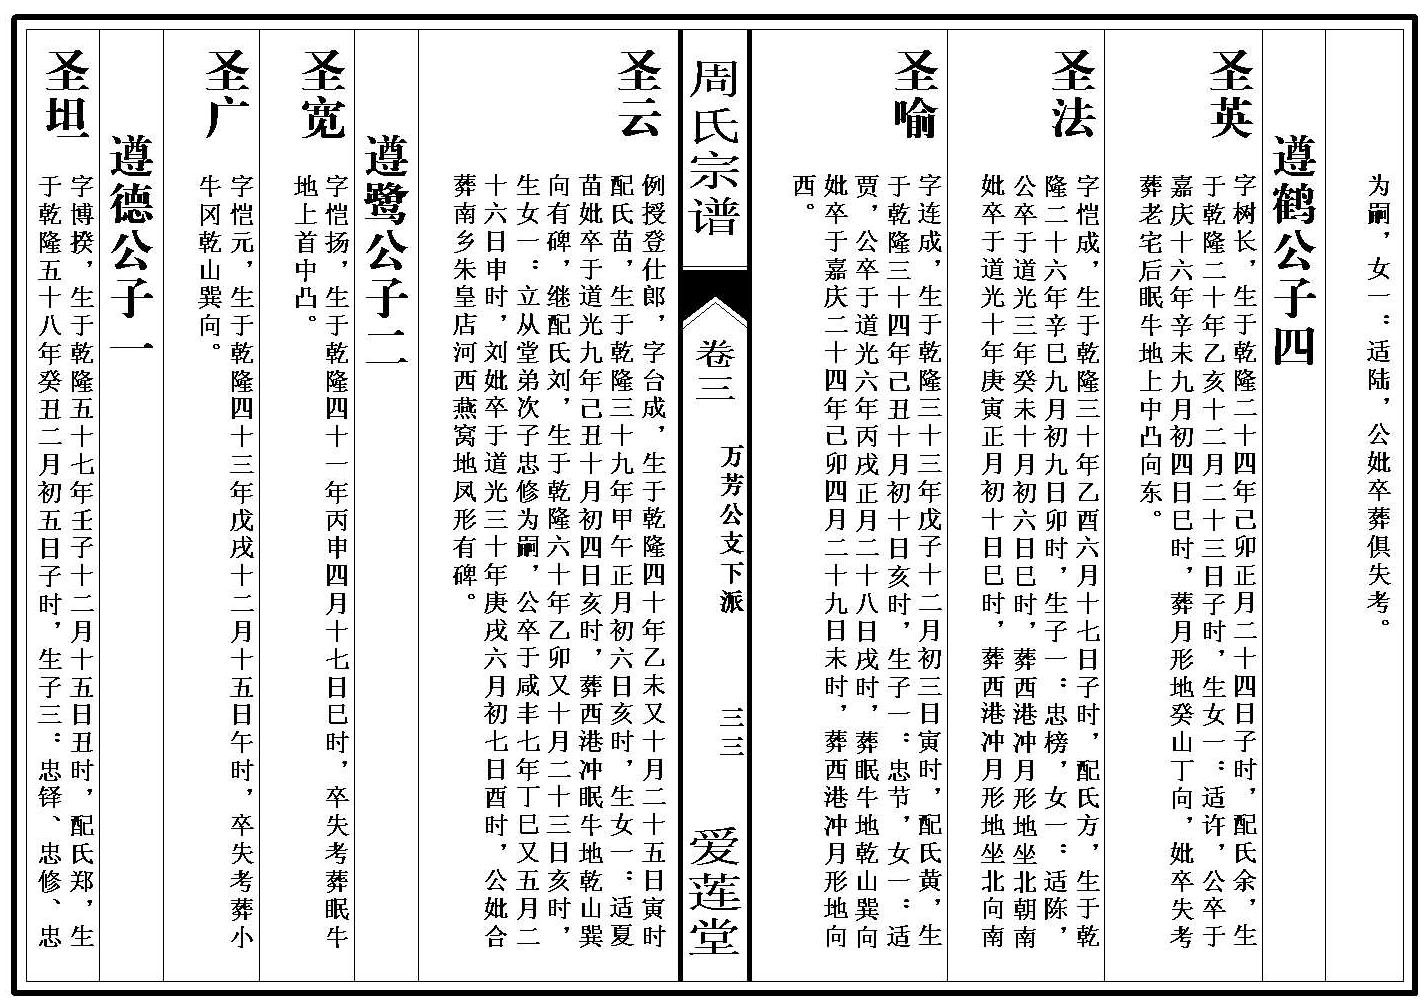 为嗣，女一：适陆，公妣卒葬俱失考。
遵鹤公子四
圣英
字树长，生于乾隆二十四年己卯正月二十四日子时，配氏余，生
于乾隆二十年乙亥十二月二十三日子时，生女一：适许，公卒于
嘉庆十六年辛未九月初四日巳时，葬月形地癸山丁向，妣卒失考
葬老宅后眠牛地上中凸向东。
圣法
字恺成，生于乾隆三十年乙酉六月十七日子时，配氏方，生于乾
隆二十六年辛巳九月初九日卯时，生子一：忠榜，女一：适陈，
公卒于道光三年癸未十月初六日巳时，葬西港冲月形地坐北朝南
妣卒于道光十年庚寅正月初十日巳时，葬西港冲月形地坐北向南
圣喻
字连成，生于乾隆三十三年戊子十二月初三日寅时，配氏黄，生
于乾隆三十四年己丑十月初十日亥时，生子一：忠节，女一：适
贾，公卒于道光六年丙戌正月二十八日戌时，葬眠牛地乾山巽向
妣卒于嘉庆二十四年己卯四月二十九日未时，葬西港冲月形地向
西。
周氏宗谱
卷三
万芳公支下派
三三
爱莲堂
圣云
例授登仕郎，字台成，生于乾隆四十年乙未又十月二十五日寅时
配氏苗，生于乾隆三十九年甲午正月初六日亥时，生女一：适夏
苗妣卒于道光九年己丑十月初四日亥时，葬西港冲眠牛地乾山巽
向有碑，继配氏刘，生于乾隆六十年乙卯又十月二十三日亥时，
生女一：立从堂弟次子忠修为嗣，公卒于咸丰七年丁巳又五月二
十六日申时，刘妣卒于道光三十年庚戌六月初七日酉时，公妣合
葬南乡朱皇店河西燕窝地凤形有碑。
遵鹭公子二
圣宽
字恺扬，生于乾隆四十一年丙申四月十七日巳时，卒失考葬眠牛
地上首中凸。
圣广
字恺元，生于乾隆四十三年戊戌十二月十五日午时，卒失考葬小
牛冈乾山巽向。
遵德公子一
圣坦
字博揆，生于乾隆五十七年壬子十二月十五日丑时，配氏郑，生
于乾隆五十八年癸丑二月初五日子时，生子三：忠铎、忠修、忠